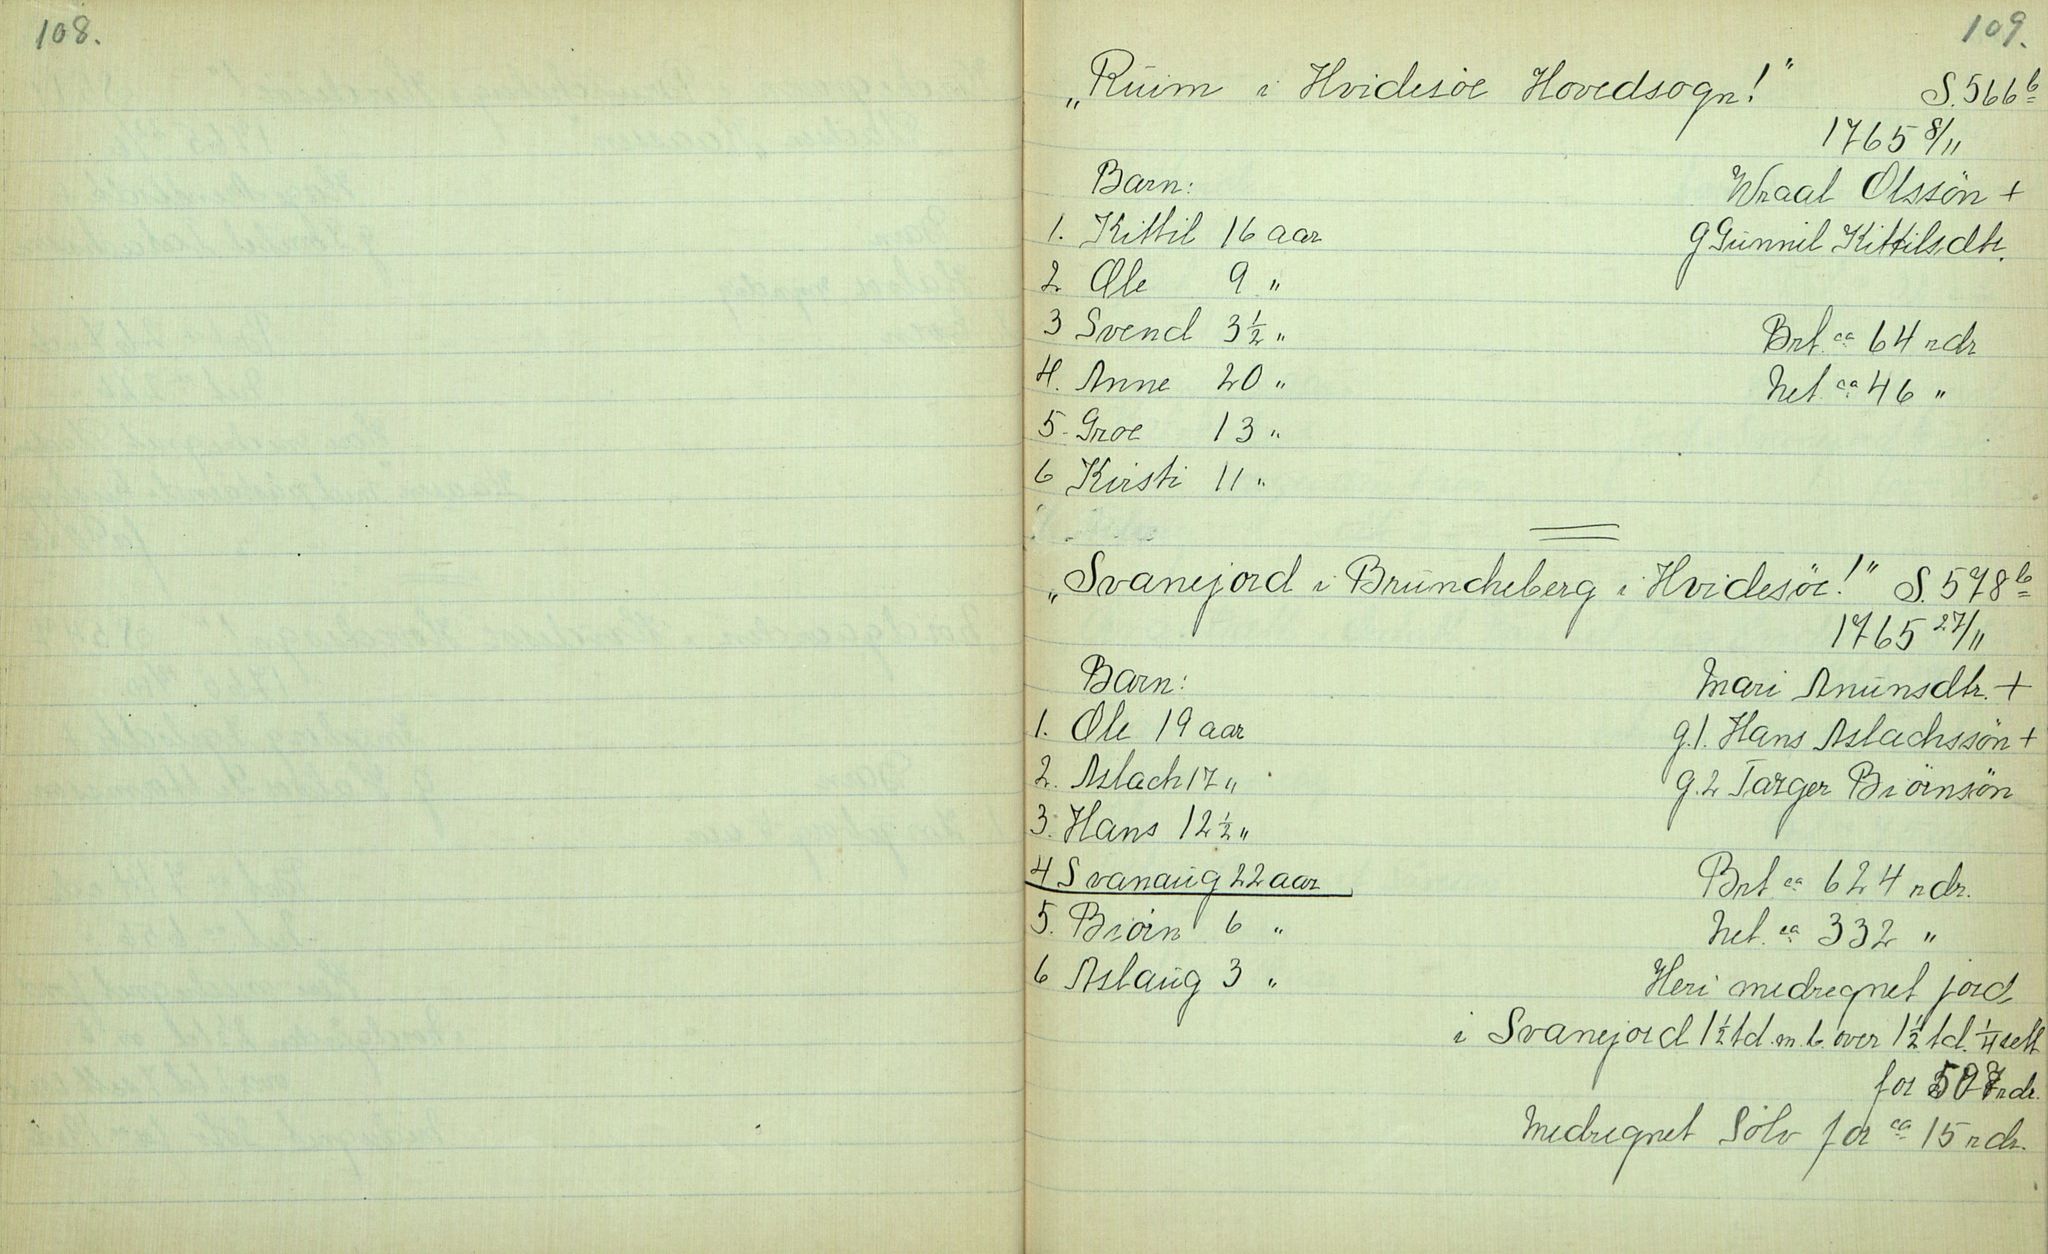 108.
109.
„Ruim i Hvidesöe Hovedsogn!" S. 566 b
1765 8/11
Barn: Wraal Olssön +
1. Kittil 16 aar g Gunnil Kittilsdtr.
2 Ole 9 "
3 Svend 3 1/2 " Brt. ca 64 rdr
4. Anne 20 " Net. ca 46 "
5. Groe 13 "
6 Kirsti 11 "
„Svanejord i Bruncheberg i Hvidesöe!" S. 578 b
1765 27/11
Barn: Mari Anunsdtr. +
1. Ole 19 aar g. 1. Hans Aslachssön +
2. Aslach 17 " g. 2 Targer Biörnsön
3. Hans 12 1/2 "
4 Svanaug 22 aar Brt ca 624 rdr.
5. Biörn 6 " Net. ca 332 "
6 Aslaug 3 " Heri medregnet jord
i Svanejord 1 1/2 td. m. b. over 1 1/2 td. 1/4 sett
for rdr.
Medregnet Sölv for ca 15 rdr.